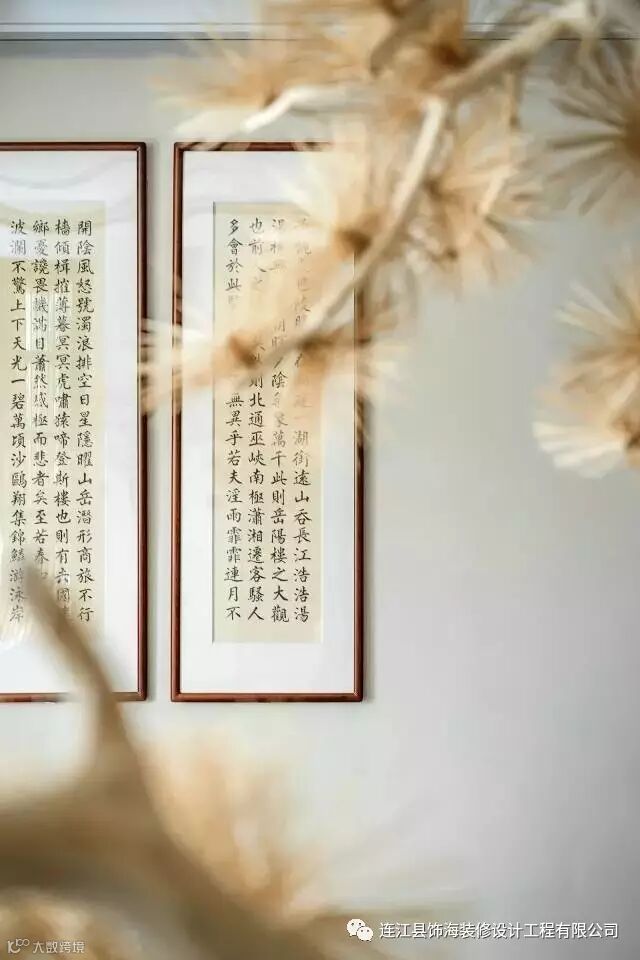 湖銜遠山吞長江浩浩湯
陰萬千此則岳陽樓之大觀
也前人之則北通巫峽南極瀟湘遷客騷人
多會於此無異乎若夫淫雨霏霏連月不
開陰風怒號濁浪排空日星隱曜山岳潛形商旅不行
檣傾楫摧薄暮冥冥虎嘯猿啼登斯樓也則有去國
鄉憂讒畏譏滿目蕭然感極而悲者矣至若春
波瀾不驚上下天光一碧萬頃沙鷗翔集錦鱗游泳岸
连江县饰海装修设计工程有限公司
大数跨境